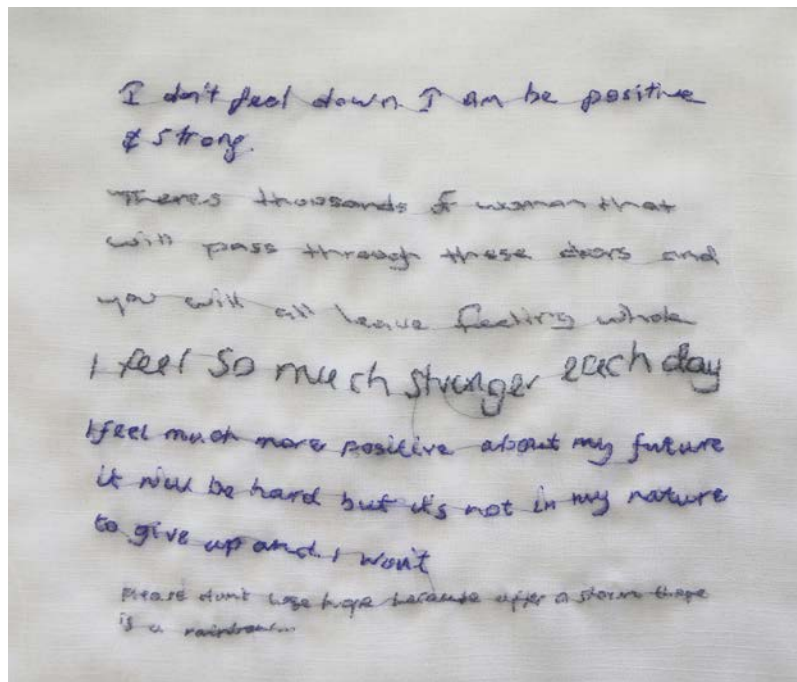 I don't feel down. I am be positive
& strong.
Theres thousands of woman that
will pass through these doors and
you will all leave feeling whole
I feel so much stronger each day
I feel much more positive about my future
it will be hard but it's not in my nature
to give up and I won't
Please don't lose hope because after a storm there
is a rainbow...